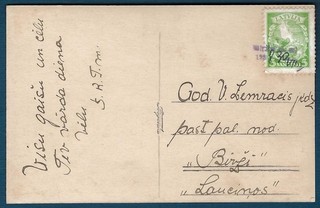 Visu gaišu un cēlu
Tev vārda dienā
vēlu
S. A. T. m.
LATVIJA
5 5
God. V. Zemracis jdz
past pal. nod.
"Birži"
"Lauciņos"